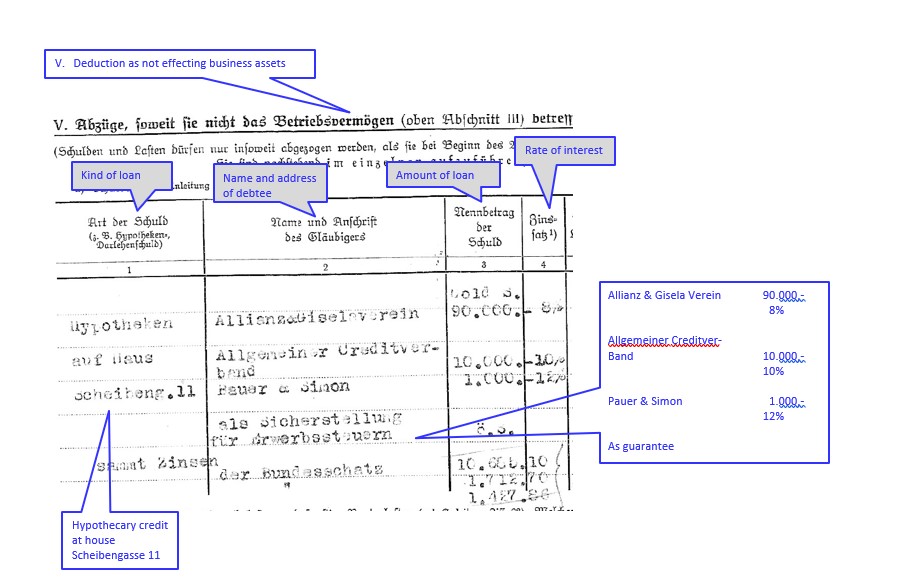 V. Deduction as not effecting business assets
V. Abzüge, soweit sie nicht das Betriebsvermögen (oben Abschnitt III) betreff
(Schulden und Lasten dürfen nur insoweit abgezogen werden, als sie bei Beginn des
Rate of interest
Kind of loan
Name and address
of debtee
Amount of loan
Art der Schuld
(z. B. Hypotheken-,
Darlehenschuld)
Name und Anschrift
des Gläubigers
Nennbetrag
der
Schuld
Zins-
satz¹)
1 2 3 4
Gold S.
Hypotheken Allianz&Giselaverein 90.000.- 8%
auf Haus Allgemeiner Creditver-
band 10.000.-10%
Scheibeng.11 Pauer & Simon 1.000.-12%
als Sicherstellung
für Erwerbssteuern ö.S.
samt Zinsen der Bundesschatz 10.
" 1.712.70
1.427.86
Allianz & Gisela Verein 90.000,-
8%
Allgemeiner Creditver-
Band 10.000,-
10%
Pauer & Simon 1.000,-
12%
As guarantee
Hypothecary credit
at house
Scheibengasse 11